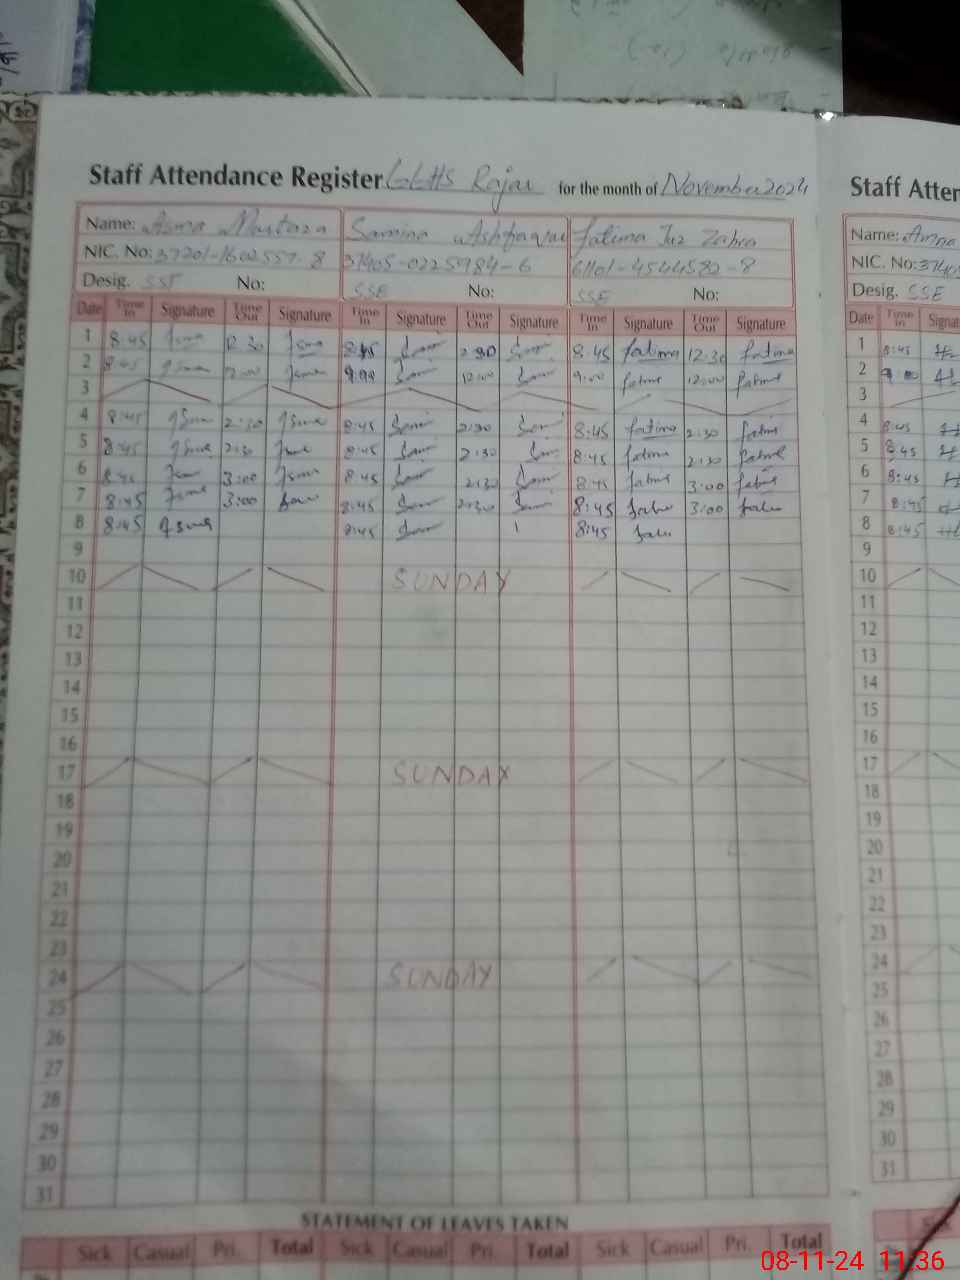 Staff Attendance Register GGHS Rajar for the month of November 2024
Name: Asma Murtaza Samina Ashfaque Fatima Tuz Zahra
NIC. No: 37201-1602557-8 37405-0225984-6 61101-4544582-8
Desig. SST No: SSE No: SSE No:
Date Time In Signature Time Out Signature Time In Signature Time Out Signature Time In Signature Time Out Signature
1 8:45 Asma 12:30 Asma 8:45 2:30 8:45 fatima 12:30 fatima
2 8:45 Asma 12:00 Asma 9:00 12:00 9:00 fatima 12:00 fatima
3
4 8:45 Asma 2:30 Asma 8:45 2:30 8:45 fatima 2:30 fatima
5 8:45 Asma 2:30 Asma 8:45 2:30 8:45 fatima 2:30 fatima
6 8:45 Asma 3:00 Asma 8:45 2:30 8:45 fatima 3:00 fatima
7 8:45 Asma 3:00 8:45 2:30 8:45 3:00
8 8:45 Asma 8:45 8:45
9
10 SUNDAY
11
12
13
14
15
16
17 SUNDAY
18
19
20
21
22
23
24 SUNDAY
25
26
27
28
29
30
31
STATEMENT OF LEAVES TAKEN
Sick Casual Pri. Total Sick Casual Pri. Total Sick Casual Pri. Total
Staff Atten
Name: Amna
NIC. No: 37405
Desig. SSE
Date Time In Signat
1 8:45
2 9:00
3
4 8:45
5 8:45
6 8:45
7 8:45
8 8:45
9
10
11
12
13
14
15
16
17
18
19
20
21
22
23
24
25
26
27
28
29
30
31
08-11-24 11:36